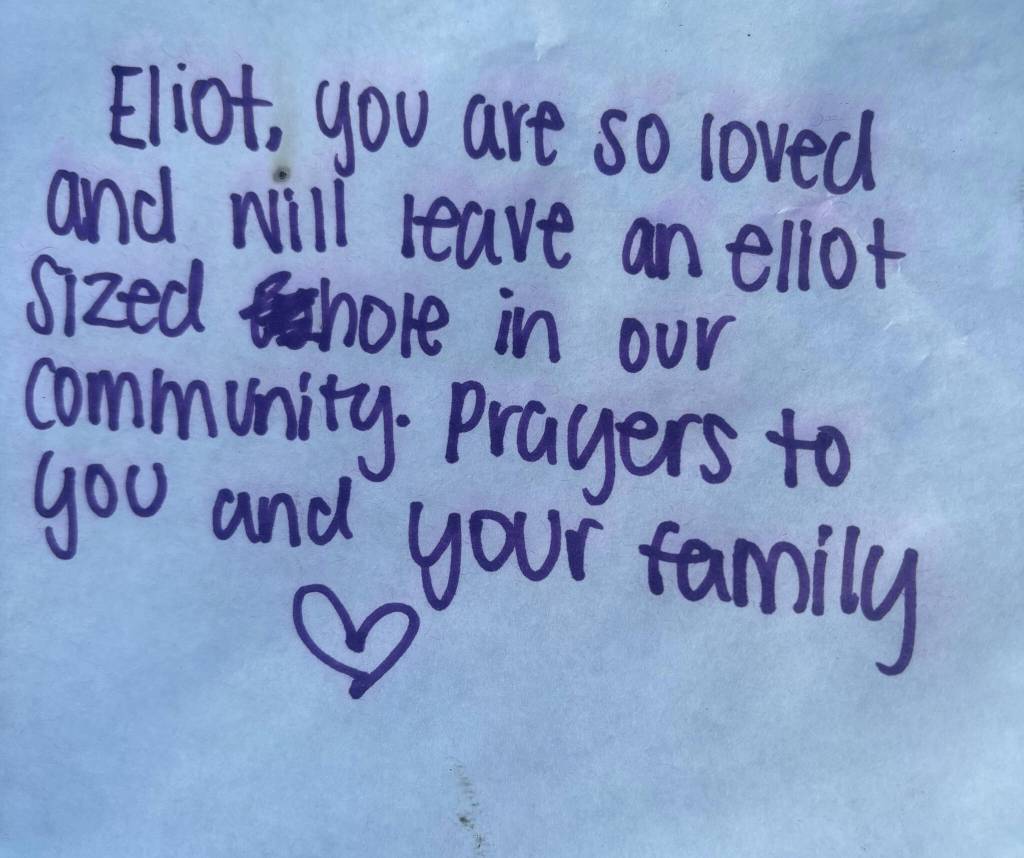 Eliot, you are so loved
and will leave an eliot
sized hole in our
community. Prayers to
you and your family